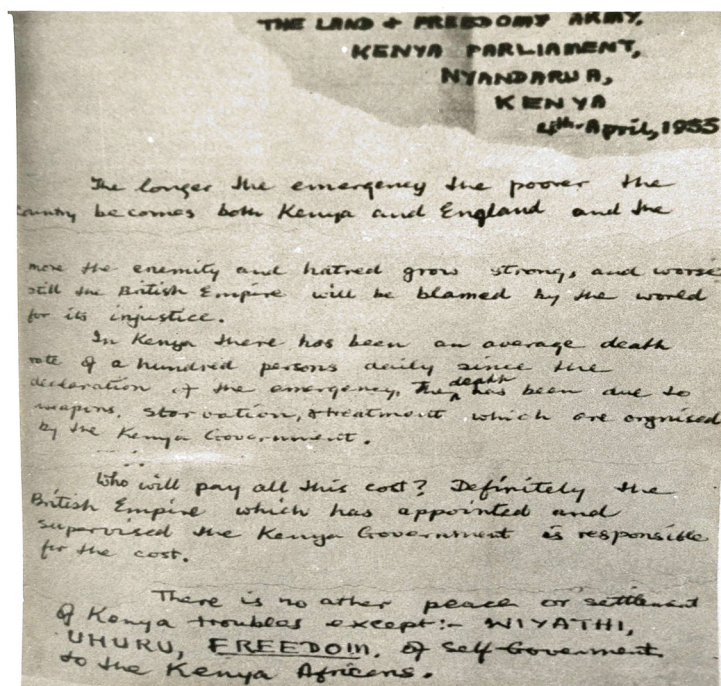 THE LAND & FREEDOMY ARMY,
KENYA PARLIAMENT,
NYANDARUA,
KENYA
4th April, 1955
The longer the emergency the poorer the
country becomes both Kenya and England and the
more the enemity and hatred grow strong, and worse
still the British Empire will be blamed by the world
for its injustice.
In Kenya there has been an average death
rate of a hundred persons daily since the
declaration of the emergency, The death has been due to
weapons, starvation, & treatment which are orgnised
by the Kenya Government.
Who will pay all this cost? Definitely the
British Empire which has appointed and
supervised the Kenya Government is responsible
for the cost.
There is no other peace or settlement
of Kenya troubles except:- WIYATHI,
UHURU, FREEDOM, of Self-Goverment
to the Kenya Africans.